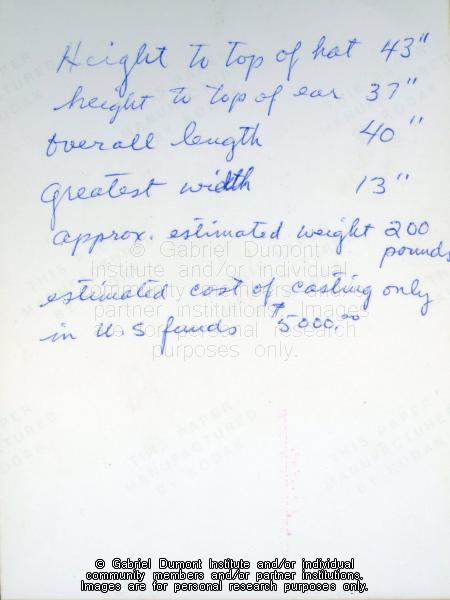 Height to top of hat 43"
height to top of ear 37"
overall length 40"
Greatest width 13"
approx. estimated weight 200
pounds
estimated cost of casting only
in U.S funds $5000.00
© Gabriel Dumont
Institute and/or individual
community members and/or
partner institutions. Images
are for personal research
purposes only.
THIS PAPER
MANUFACTURED
BY KODAK
© Gabriel Dumont Institute and/or individual
community members and/or partner institutions.
Images are for personal research purposes only.